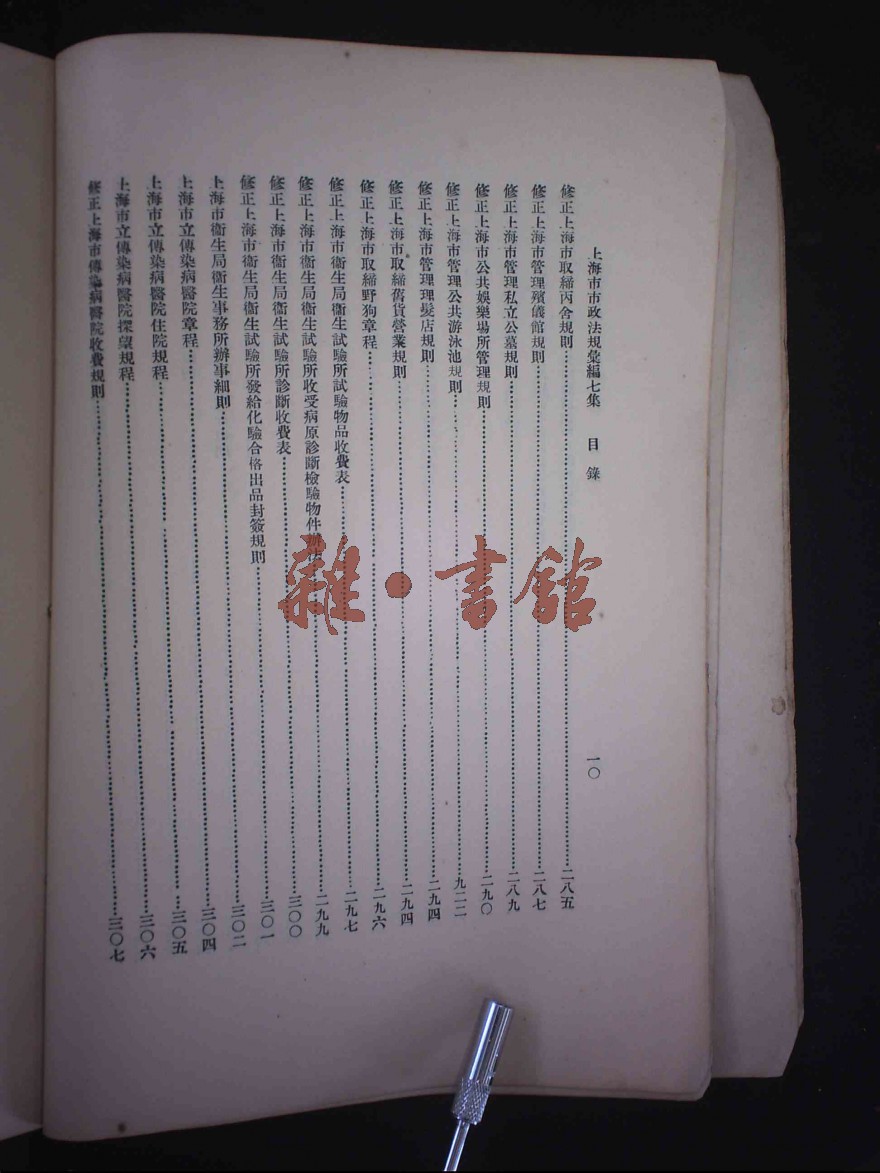 上海市市政法規彙編七集 目錄 一〇
修正上海市取締丙舍規則……二八五
修正上海市管理殯儀館規則……二八七
修正上海市管理私立公墓規則……二八九
修正上海市公共娛樂場所管理規則……二九〇
修正上海市管理公共游泳池規則……九二二
修正上海市管理理髮店規則……二九四
修正上海市取締舊貨營業規則……二九四
修正上海市取締野狗章程……二九六
修正上海市衞生局衞生試驗所試驗物品收費表……二九七
修正上海市衞生局衞生試驗所收受病原診斷檢驗物件辦法……二九九
修正上海市衞生局衞生試驗所診斷收費表……三〇〇
修正上海市衞生局衞生試驗所發給化驗合格出品封簽規則……三〇一
上海市衞生局衞生事務所辦事細則……三〇二
上海市立傳染病醫院章程……三〇四
上海市立傳染病醫院住院規程……三〇五
上海市立傳染病醫院探望規程……三〇六
修正上海市傳染病醫院收費規則……三〇七
雜·書館